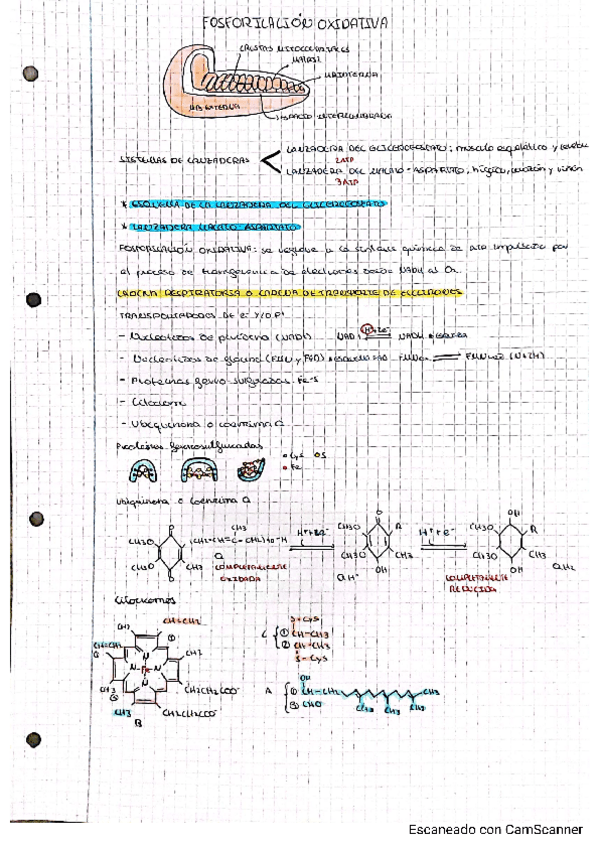 FOSFORILACIÓN OXIDATIVA
CRESTAS MITOCONDRIALES
MATRIZ
MB INTERNA
MB EXTERNA
ESPACIO INTERMEMBRANA
SISTEMAS DE LANZADERAS
LANZADERA DEL GLICEROFOSFATO; músculo esquelético y cerebro
2ATP
LANZADERA DEL MALATO-ASPARTATO; hígado, corazón y riñón
3ATP
* ESQUEMA DE LA LANZADERA DEL GLICEROFOSFATO
* LANZADERA MALATO ASPARTATO
FOSFORILACIÓN OXIDATIVA: se refiere a la síntesis química de ATP impulsada por
el proceso de transferencia de electrones desde NADH al O2.
CADENA RESPIRATORIA O CADENA DE TRANSPORTE DE ELECTRONES
TRANSPORTADORES DE e- Y/O P+
- Nucleótidos de piridina (NADH)
- Nucleótidos de flavina (FMN y FAD)
- Proteínas ferro sulfuradas. Fe-S
- Citocromo
- Ubiquinona o coenzima Q
Proteínas ferrosulfuradas
Cys S
Fe
Ubiquinona o coenzima Q
CH3O
CH3O
O
O
CH3
(CH2-CH=C-CH2)10-H
Q
COMPLETAMENTE
OXIDADA
H+ + e-
CH3O
CH3O
O
R
CH3
OH
QH·
H+ + e-
CH3O
CH3O
OH
R
CH3
OH
QH2
COMPLETAMENTE
REDUCIDA
Citocromos
CH3
CH=CH2
①
CH=CH2
②
CH3
N
N
N
N
Fe
CH3
CH3
CH2CH2COO-
CH2CH2COO-
B
C
S-Cys
① CH-CH3
② CH-CH3
S-Cys
A
OH
① CH-CH2
CH3
② CHO
CH3 CH3 CH3
Escaneado con CamScanner